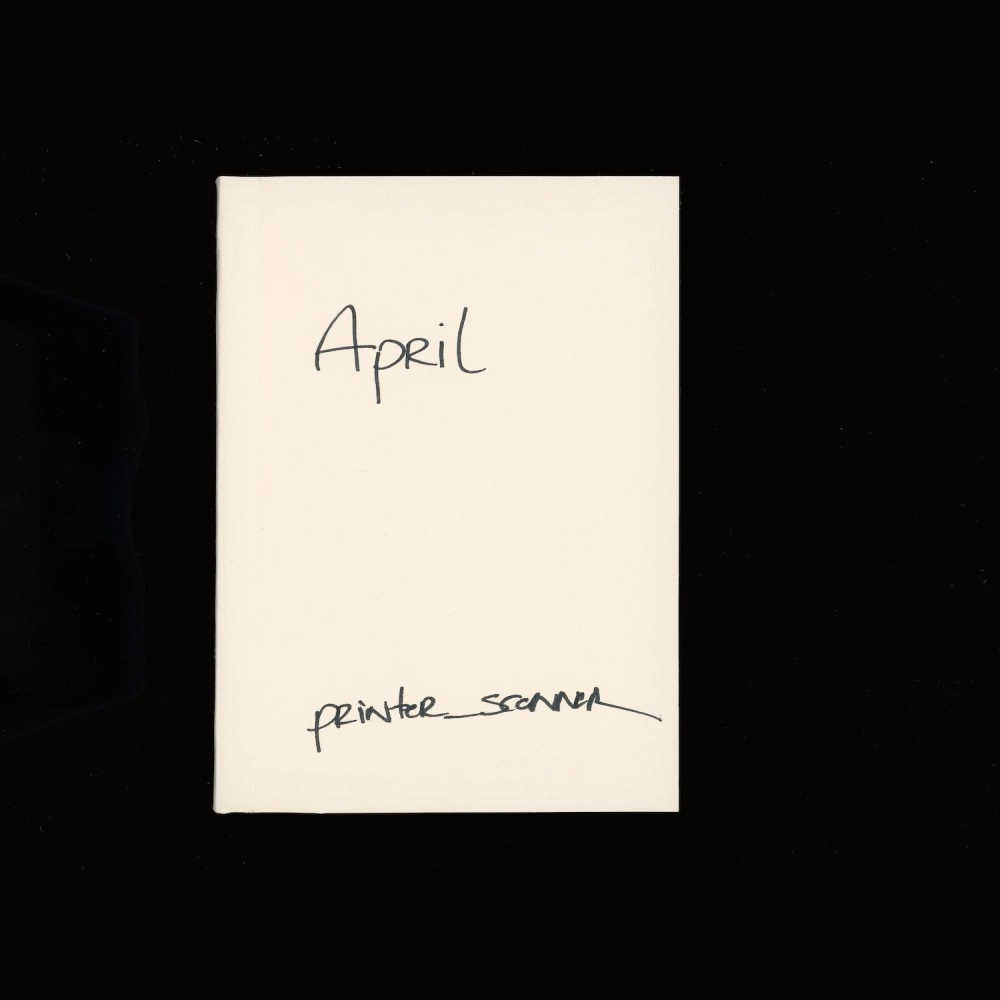 April
printer_scanner